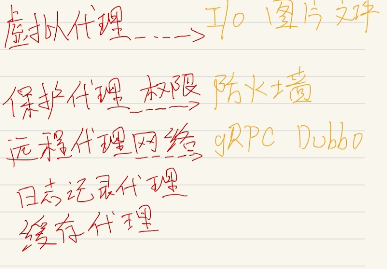 虚拟代理 I/o 图片文件
保护代理 权限 防火墙
远程代理网络 gRPC Dubbo
日志记录代理
缓存代理